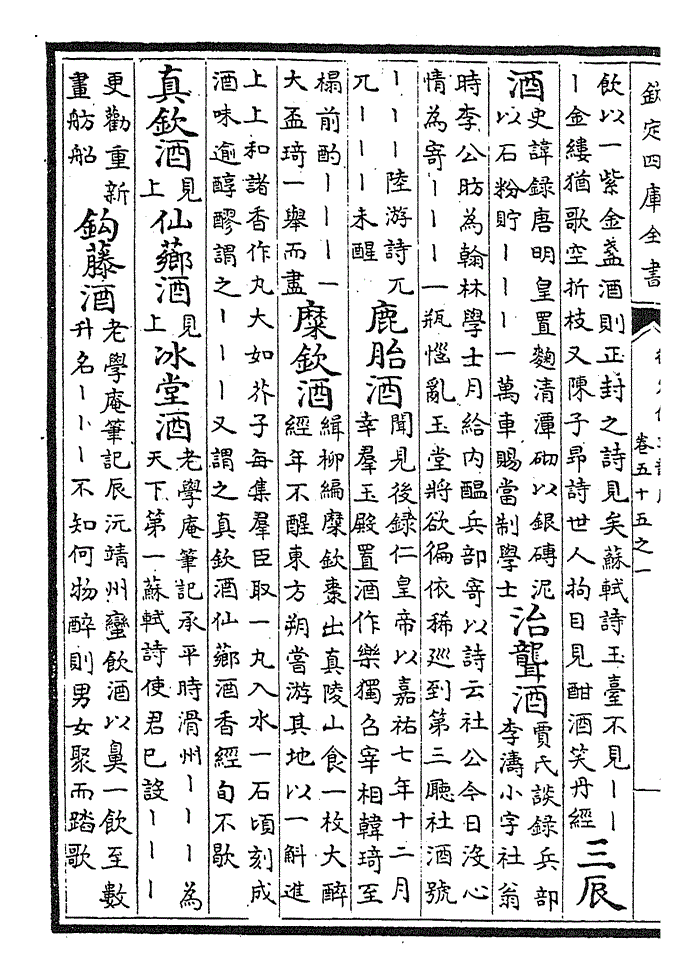 欽定四庫全書
卷五十五之一
飲以一紫金盞酒則正封之詩見矣蘇軾詩玉臺不見丨丨
丨金縷猶歌空折枝又陳子昂詩世人拘目見酣酒笑丹經
三辰
酒
史諱錄唐明皇置麴清潭砌以銀磚泥
以石粉貯丨丨丨一萬車賜當制學士
治聾酒
賈氏談錄兵部
李濤小字社翁
時李公昉為翰林學士月給内醖兵部寄以詩云社公今日沒心
情為寄丨丨丨一瓶惱亂玉堂將欲徧依稀廵到第三廳社酒號
丨丨丨陸游詩兀
兀丨丨丨未醒
鹿胎酒
聞見後録仁皇帝以嘉祐七年十二月
幸羣玉殿置酒作樂獨召宰相韓琦至
榻前酌丨丨丨一
大盃琦一舉而盡
糜欽酒
緝柳編糜欽棗出真陵山食一枚大醉
經年不醒東方朔嘗游其地以一斛進
上上和諸香作丸大如芥子每集羣臣取一丸入水一石頃刻成
酒味逾醇醪謂之丨丨丨又謂之真欽酒仙薌酒香經旬不歇
真欽酒
見
上
仙薌酒
見
上
冰堂酒
老學庵筆記承平時滑州丨丨丨為
天下第一蘇軾詩使君已設丨丨丨
更勸重新
畫舫船
鈎藤酒
老學庵筆記辰沅靖州蠻飲酒以鼻一飲至數
升名丨丨丨不知何物醉則男女聚而踏歌